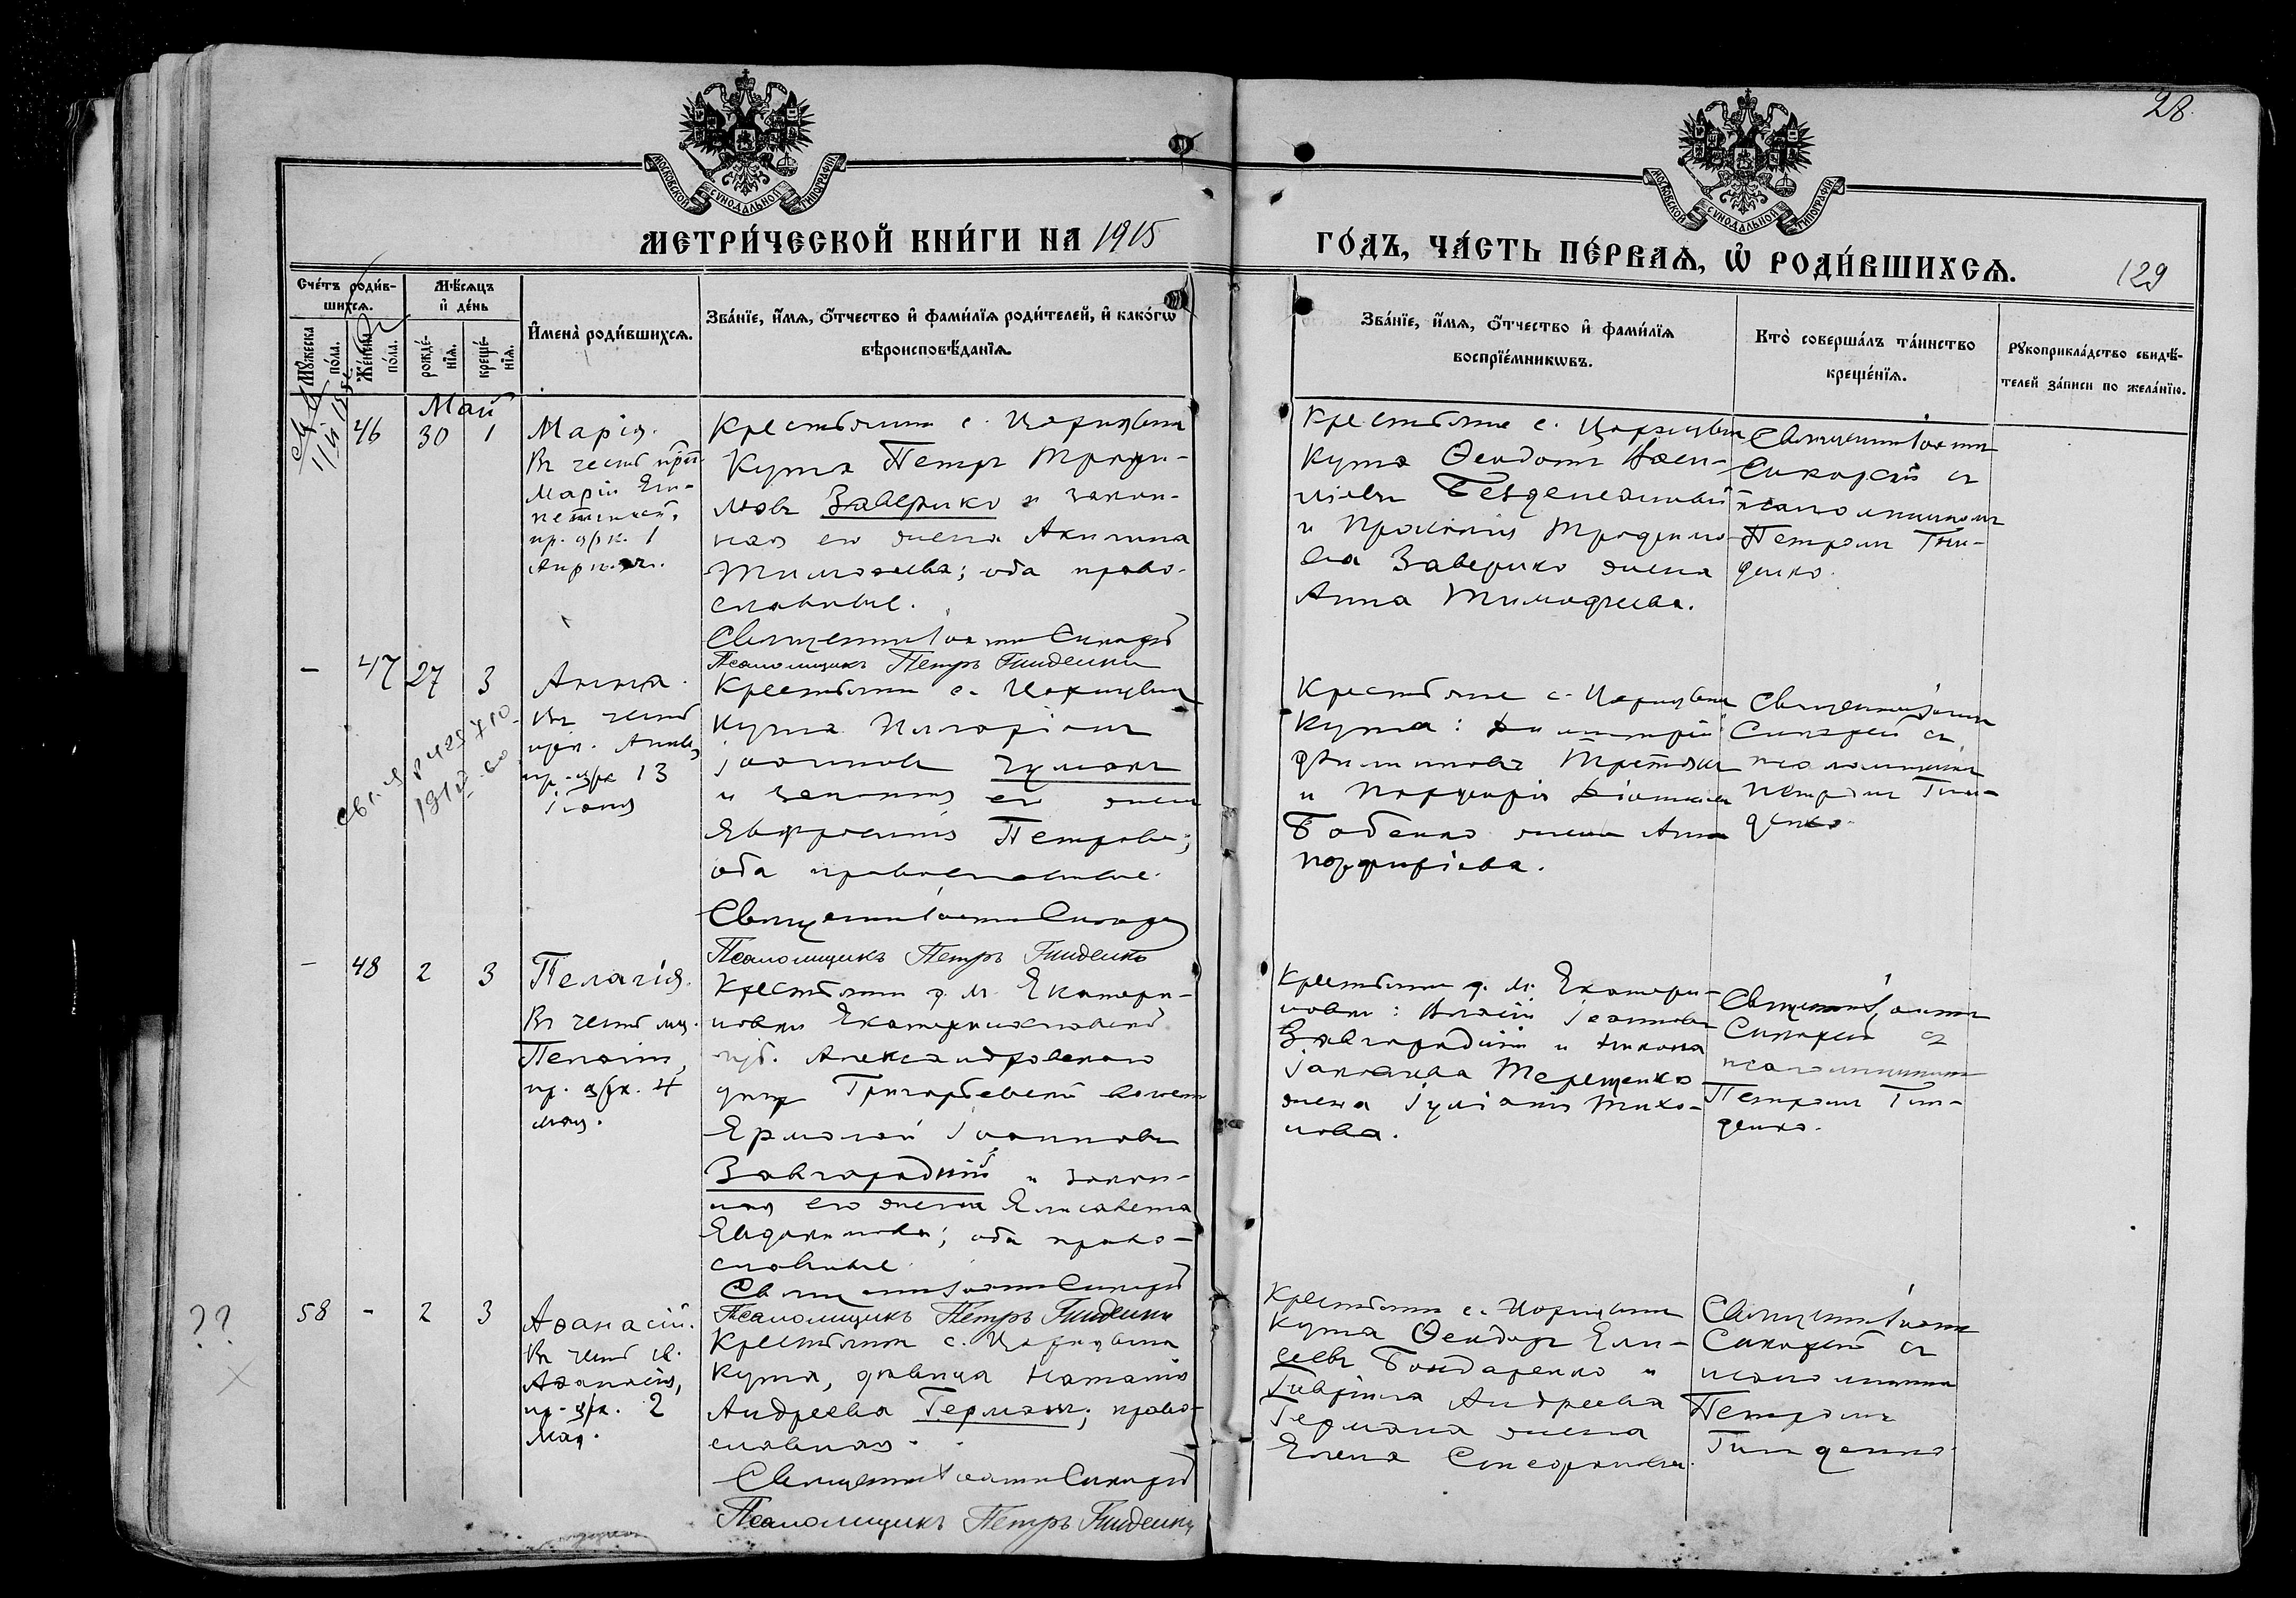 28
МОСКОВСКОЙ СѴНОДАЛЬНОЙ ТИПОГРАФІИ
МОСКОВСКОЙ СѴНОДАЛЬНОЙ ТИПОГРАФІИ
МЕТРИ́ЧЕСКОЙ КНИ́ГИ НА 1915
ГО́ДЪ, ЧА́СТЬ ПЕ́РВАѦ, Ѡ҆ РОДИ́ВШИХСѦ.
129
Сче́тъ роди́в-
шихсѧ.
Мꙋ́жеска по́ла.
Же́нска по́ла.
Мѣ́сѧцъ и҆ де́нь
рожде́-
нїѧ.
креще́-
нїѧ.
И҆мена̀ роди́вшихсѧ.
Зва́нїе, и҆́мѧ, ѻ҆́тчество и҆ фами́лїѧ роди́телей, и҆ како́гѡ
вѣроисповѣ́данїѧ.
Зва́нїе, и҆́мѧ, ѻ҆́тчество и҆ фами́лїѧ
воспрїе́мникѡвъ.
Кто̀ соверша́лъ та́инство
креще́нїѧ.
Рꙋкоприкла́дство свидѣ́-
телей за́писи по жела́нїю.
Май
46 30 1
Марія.
Въ честь прп.
Маріи Еги-
петской,
пр. цр҃к. 1
апрѣля.
Крестьянинъ с. Царицына
Кута Петръ Трофи-
мовъ Заверико и закон-
ная его жена Акилина
Тимоѳеева; оба право-
славные.
Священникъ Іоаннъ Сикорскій
Псаломщикъ Петръ Гниденко
Крестьяне с. Царицына
Кута Ѳеодотъ
Безденежный
и Трофимо-
ва Заверико жена
Анна Тимофеева.
Священникъ Іоаннъ
Сикорскій съ
псаломщикомъ
Петромъ Гни-
денко.
- 47 27 3
Анна.
Въ честь
прп. Анны,
пр. цр҃к 13
Іюня
Крестьянинъ с. Царицына
Кута Илларіонъ
Іоанновъ Чумакъ
и законная его жена
Евфросинія Петрова;
оба православные.
Священникъ Іоаннъ Сикорскій
Псаломщикъ Петръ Гниденко
Крестьяне с. Царицына
Кута: Димитрій
Филипповъ Третякъ
и Порфирія
Бабенко жена Анна
Порфиріева.
Священникъ Іоаннъ
Сикорскій съ
псаломщикомъ
Петромъ Гни-
денко.
- 48 2 3
Пелагія.
Въ честь мц.
Пелагіи,
пр. цр҃к. 4
мая.
Крестьянинъ д. М. Екатери-
новки Екатеринославской
губ. Александровскаго
уѣзда Григорьевской волости
Ермолай Іоанновъ
Завгородній и закон-
ная его жена Елисавета
Евдокимова; оба право-
славные.
Священникъ Іоаннъ Сикорскій
Псаломщикъ Петръ Гниденко
Крестьяне д. М. Екатери-
новки: Іоанновъ
Завгородній и
Іаковлева Терещенко
жена Іуліанія Тихо-
нова.
Священникъ Іоаннъ
Сикорскій съ
псаломщикомъ
Петромъ Гни-
денко.
??
58 - 2 3
Аѳанасій.
Въ честь св.
Аѳанасія,
пр. цр҃к. 2
Мая.
Крестьянка с. Царицына
Кута, дѣвица Наталія
Андреева Германъ; право-
славная.
Священникъ Іоаннъ Сикорскій
Псаломщикъ Петръ Гниденко
Крестьяне с. Царицына
Кута Ѳеодоръ Ели-
сеевъ Бондаренко и
Гавріила Андреева
Германа жена
Елена
Священникъ Іоаннъ
Сикорскій съ
псаломщикомъ
Петромъ
Гниденко.